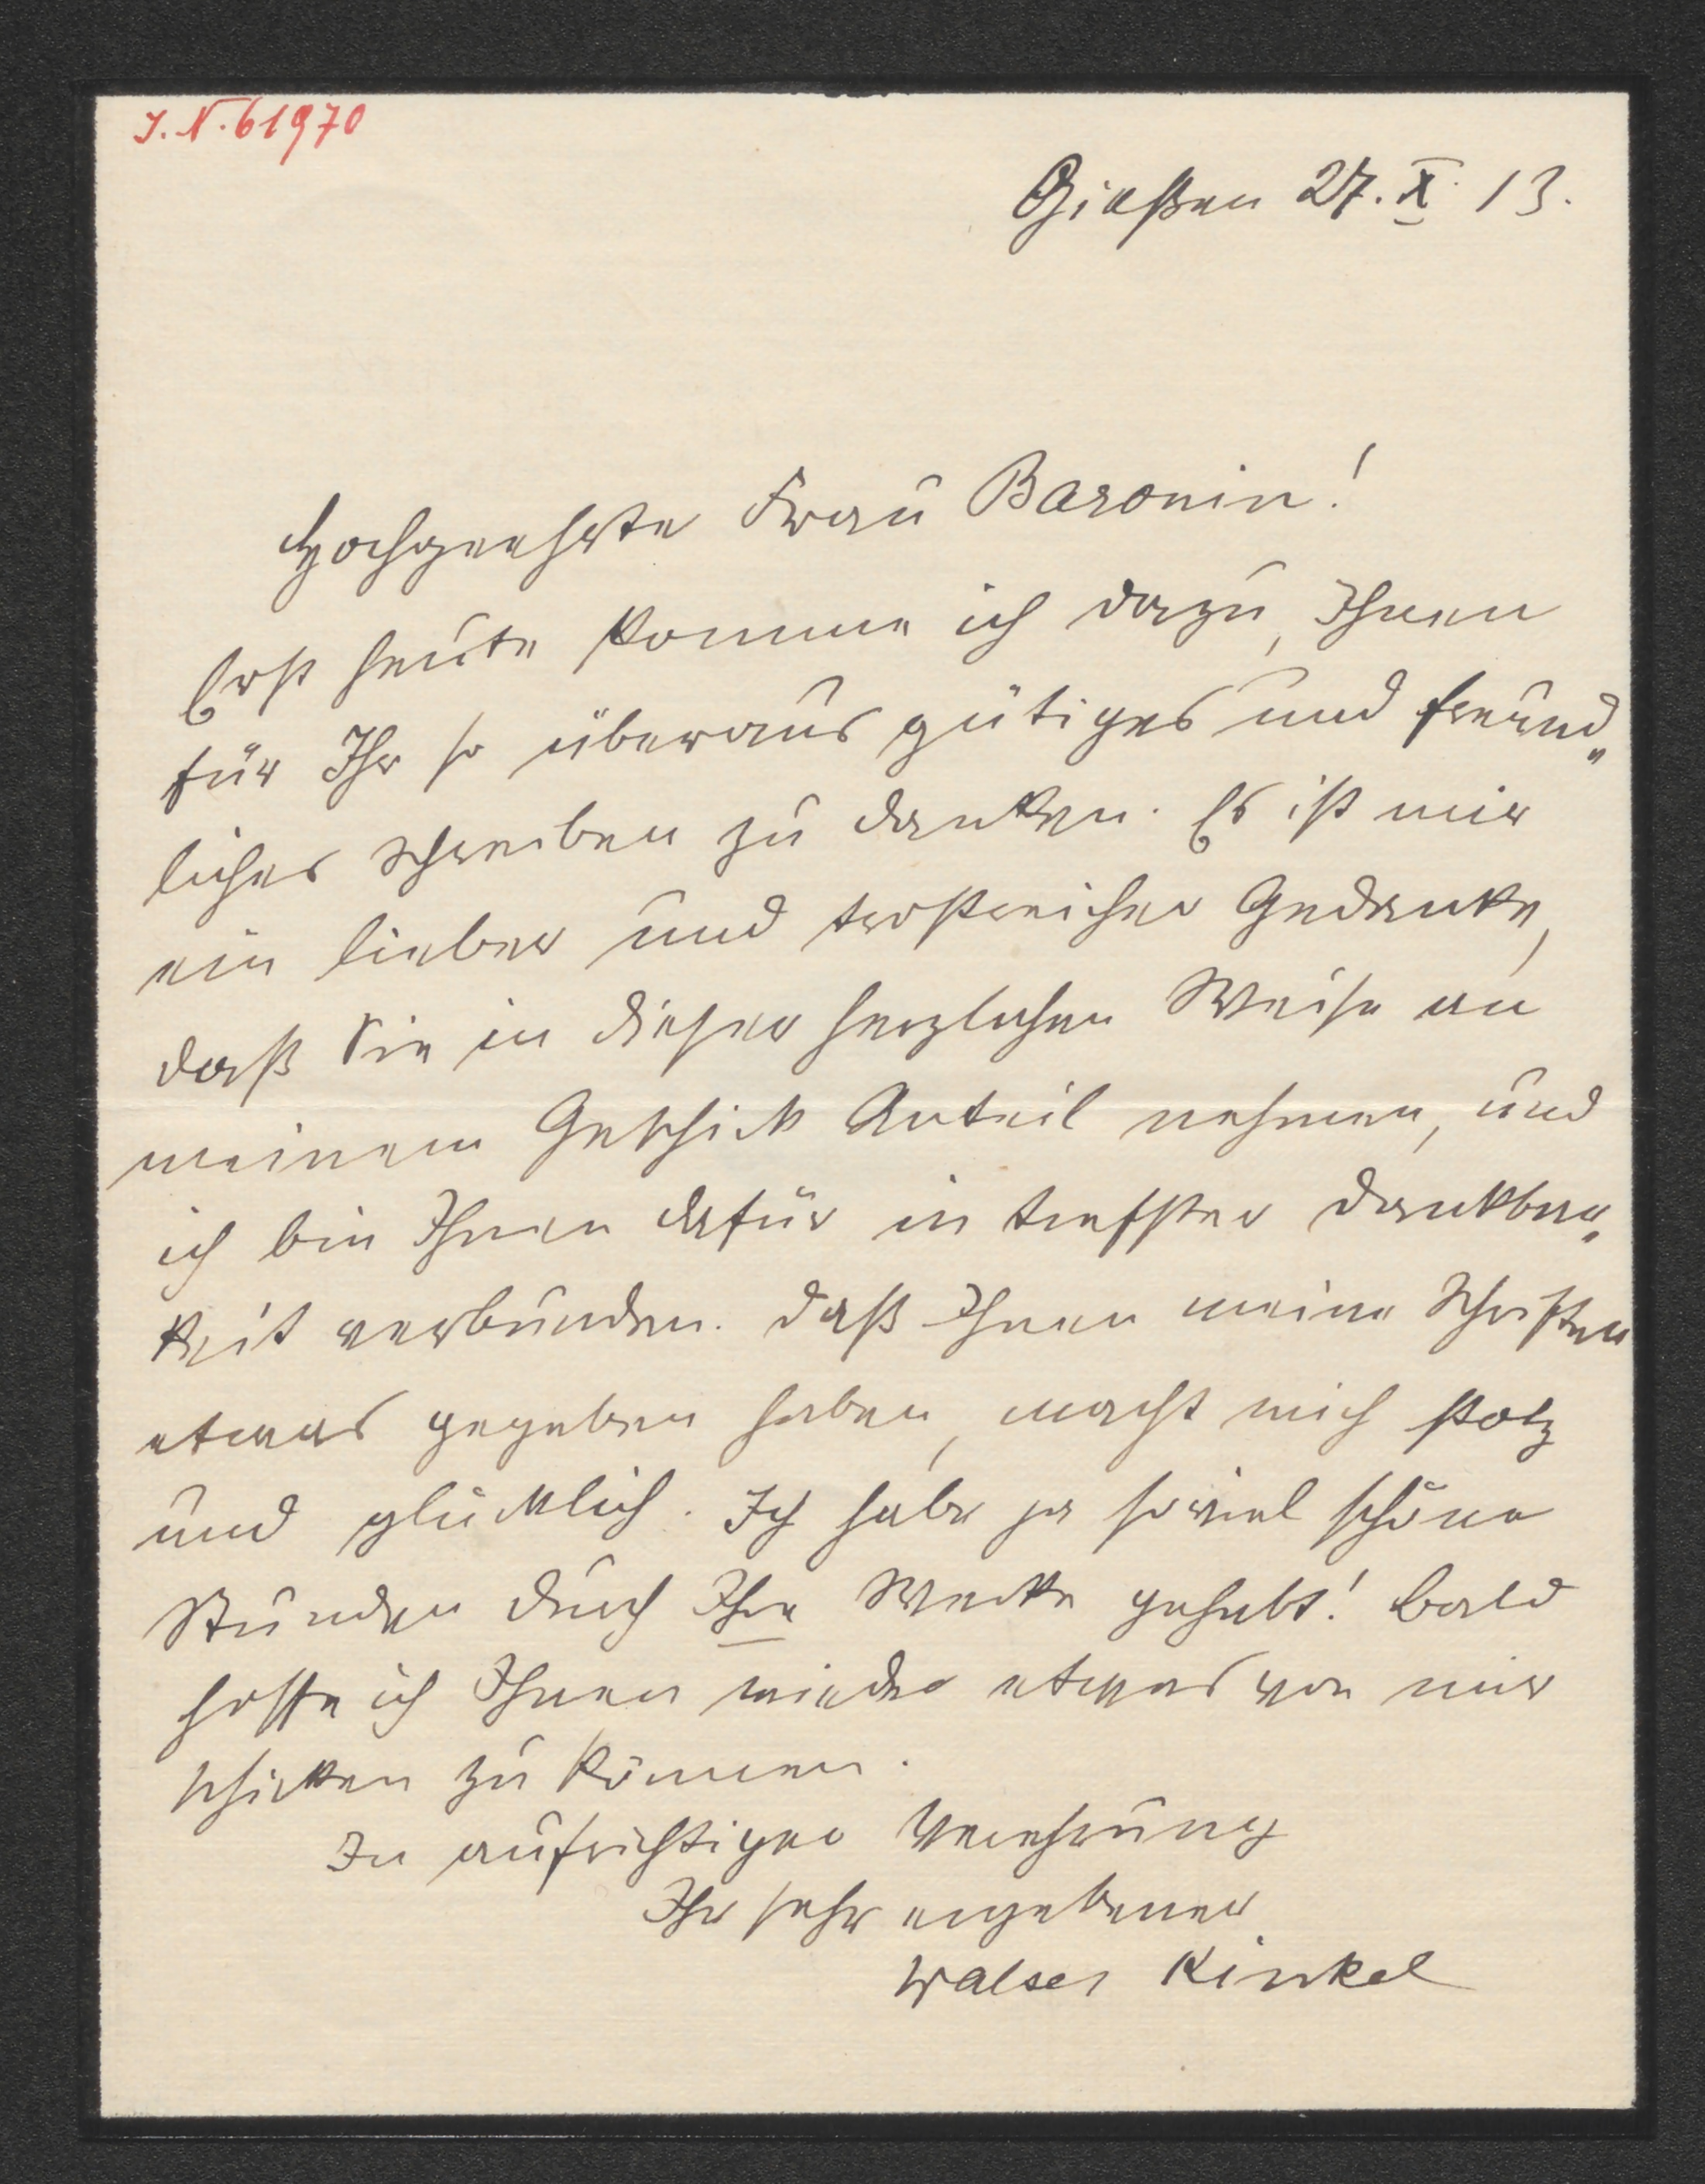 I.N. 61970
Gießen 27. X. 13.
Hochgeehrte Frau Baronin!
Erst heute komme ich dazu, Ihnen
für Ihr so überaus gütiges und freund„
liches Schreiben zu danken. Es ist mir
ein lieber und trostreicher Gedanke,
daß Sie in dieser herzlichen Weise an
meinem Geschick Anteil nehmen, und
ich bin Ihnen dafür in tiefster Dankbar„
keit verbunden. Daß Ihnen meine Schriften
etwas gegeben haben, macht mich stolz
und glücklich. Ich habe ja soviel schöne
Stunden durch Ihre Werke gehabt! Bald
hoffe ich Ihnen wieder etwas von mir
schicken zu können.
In aufrichtiger Verehrung
Ihr sehr ergebener
Walter Kinkel